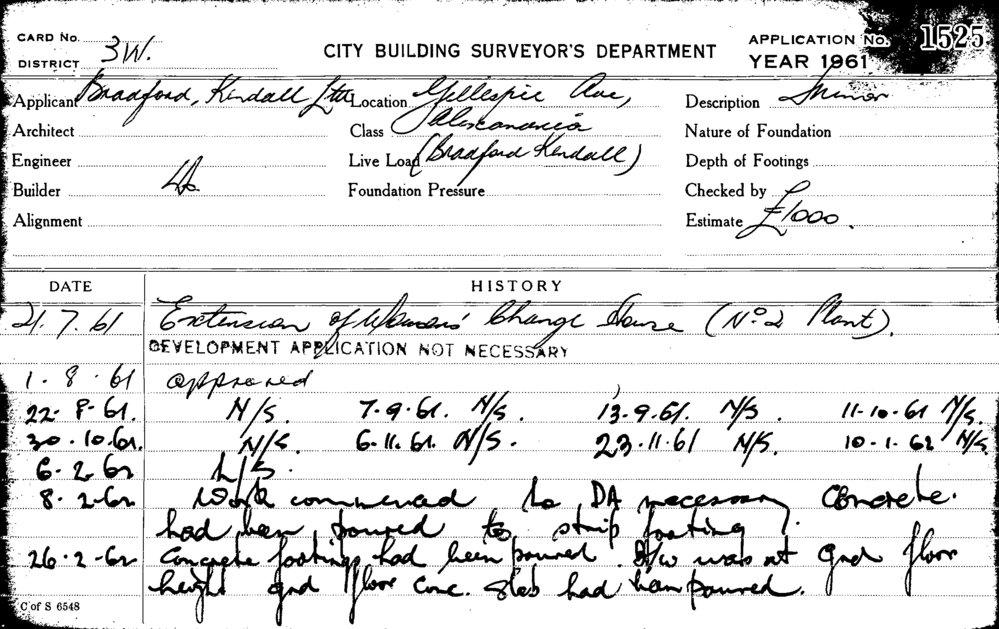 CARD No.
DISTRICT 3W.
CITY BUILDING SURVEYOR'S DEPARTMENT
APPLICATION No. 1525
YEAR 1961
Applicant Bradford, Kendall Ltd Location Gillespie Ave, Description Minor
Architect Class Alexandria Nature of Foundation
Engineer Live Load (Bradford Kendall) Depth of Footings
Builder Foundation Pressure Checked by
Alignment Estimate £1000.
DATE HISTORY
21.7.61 Extension of Womens' Change House (No 2 Plant).
DEVELOPMENT APPLICATION NOT NECESSARY
1.8.61 approved
22.8.61. N/S. 7.9.61. N/S. 13.9.61. N/S. 11.10.61 N/S.
30.10.61. N/S. 6.11.61. N/S. 23.11.61 N/S. 10.1.62 N/S.
6.2.62 L/S.
8.2.62 Work commenced No DA necessary Concrete.
had been poured to strip footing.
26.2-62 Concrete footings had been poured. B/w was at gnd floor
height gnd floor conc. slab had been poured.
C of S 6548